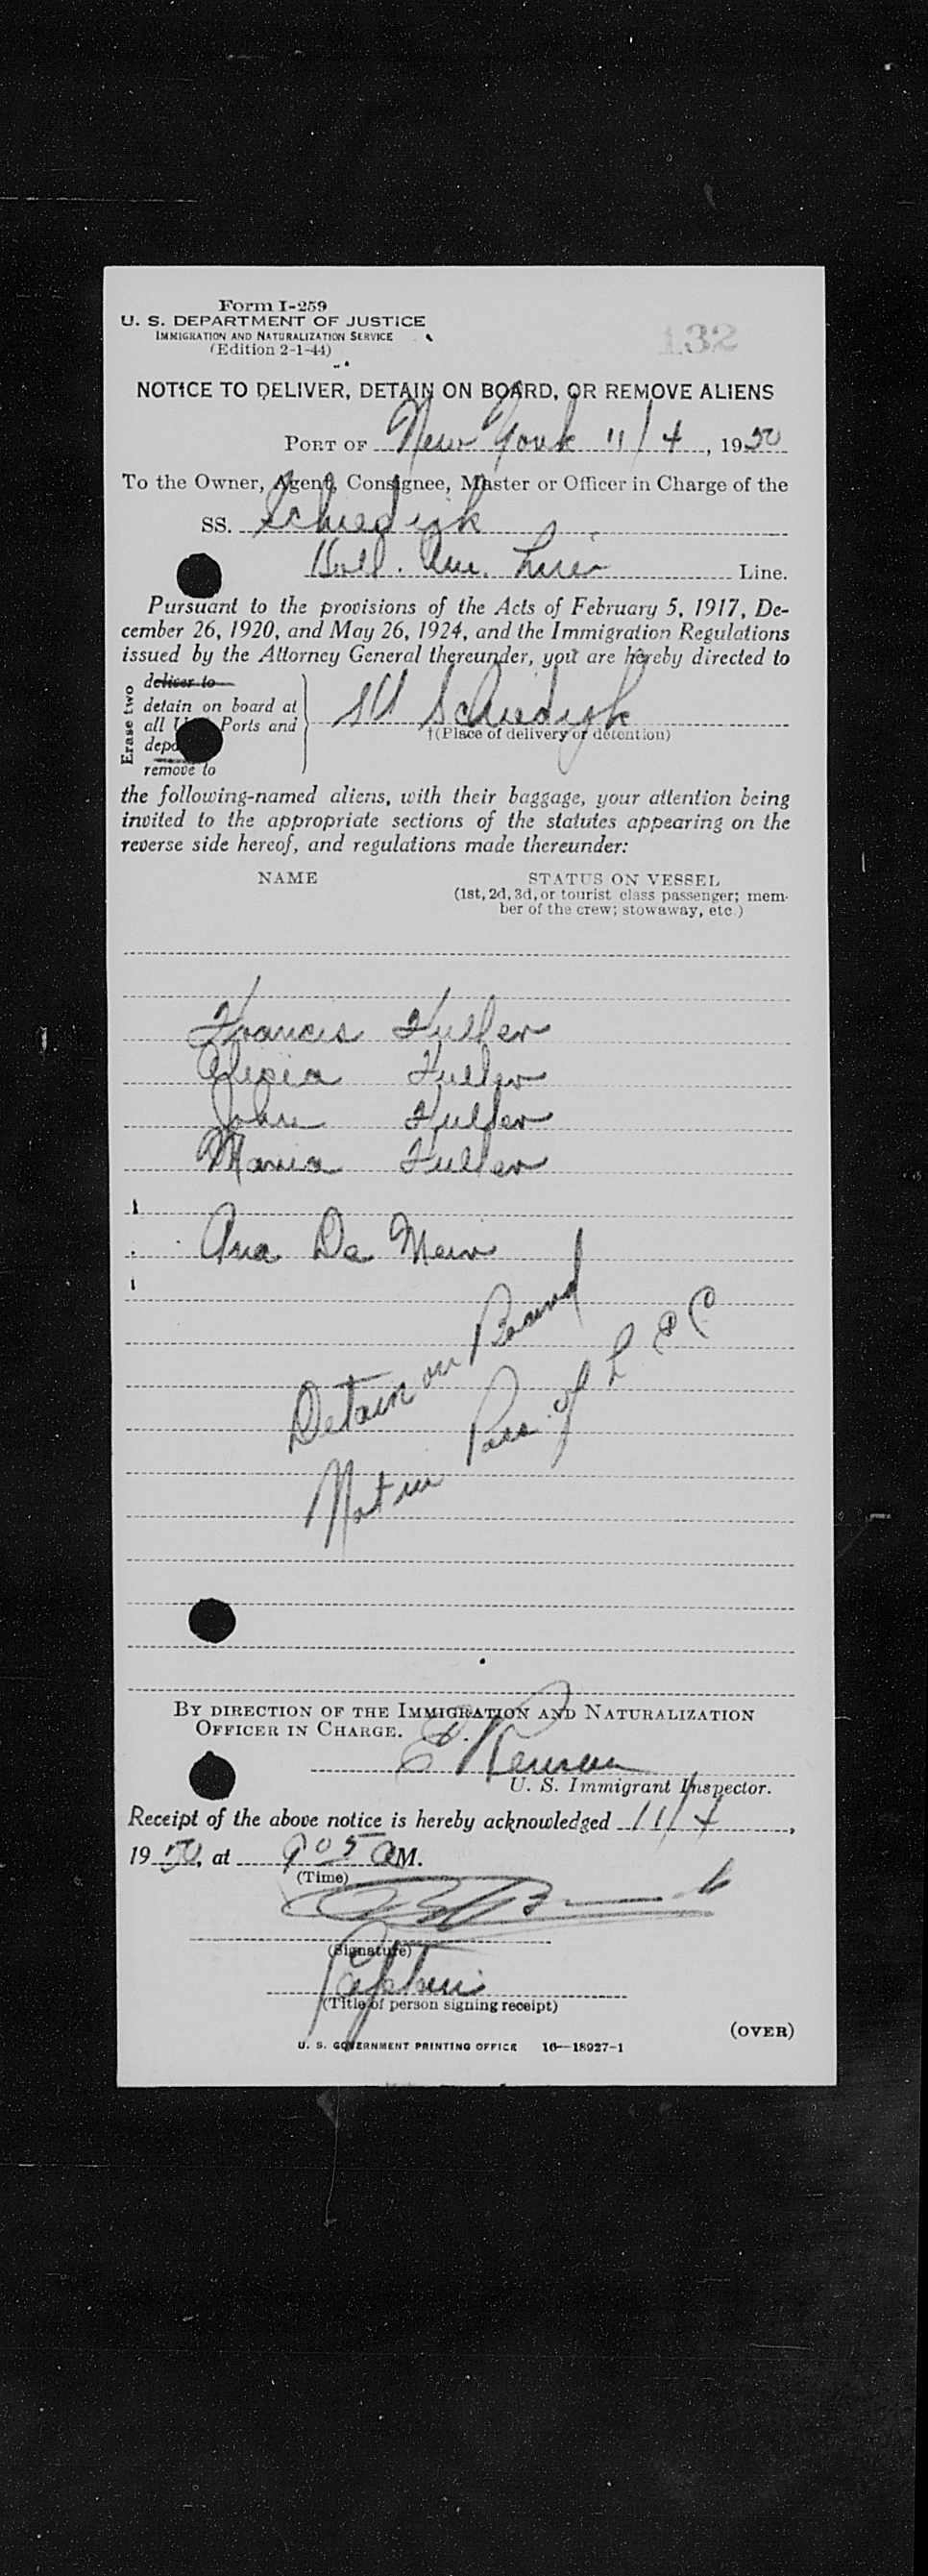 Form I-259
U. S. DEPARTMENT OF JUSTICE
IMMIGRATION AND NATURALIZATION SERVICE
(Edition 2-1-44)
132
NOTICE TO DELIVER, DETAIN ON BOARD, OR REMOVE ALIENS
PORT OF New York 11/4, 1950
To the Owner, Agent, Consignee, Master or Officer in Charge of the
SS. Schiedijk
Holl. Am. Line Line.
Pursuant to the provisions of the Acts of February 5, 1917, De-
cember 26, 1920, and May 26, 1924, and the Immigration Regulations
issued by the Attorney General thereunder, you are hereby directed to
Erase two
deliver to
detain on board at
all Ports and
remove to
SS Schiedijk
†(Place of delivery or detention)
the following-named aliens, with their baggage, your attention being
invited to the appropriate sections of the statutes appearing on the
reverse side hereof, and regulations made thereunder:
NAME STATUS ON VESSEL
(1st, 2d, 3d, or tourist class passenger; mem-
ber of the crew; stowaway, etc.)
Francis Fuller
Fuller
John Fuller
Maria Fuller
Ana De
Detain on Board
Not in Poss. of
BY DIRECTION OF THE IMMIGRATION AND NATURALIZATION
OFFICER IN CHARGE.
U. S. Immigrant Inspector.
Receipt of the above notice is hereby acknowledged 11/4,
1950, at 905 AM.
(Time)
(Signature)
Captain
(Title of person signing receipt)
(OVER)
U. S. GOVERNMENT PRINTING OFFICE 16—18927-1